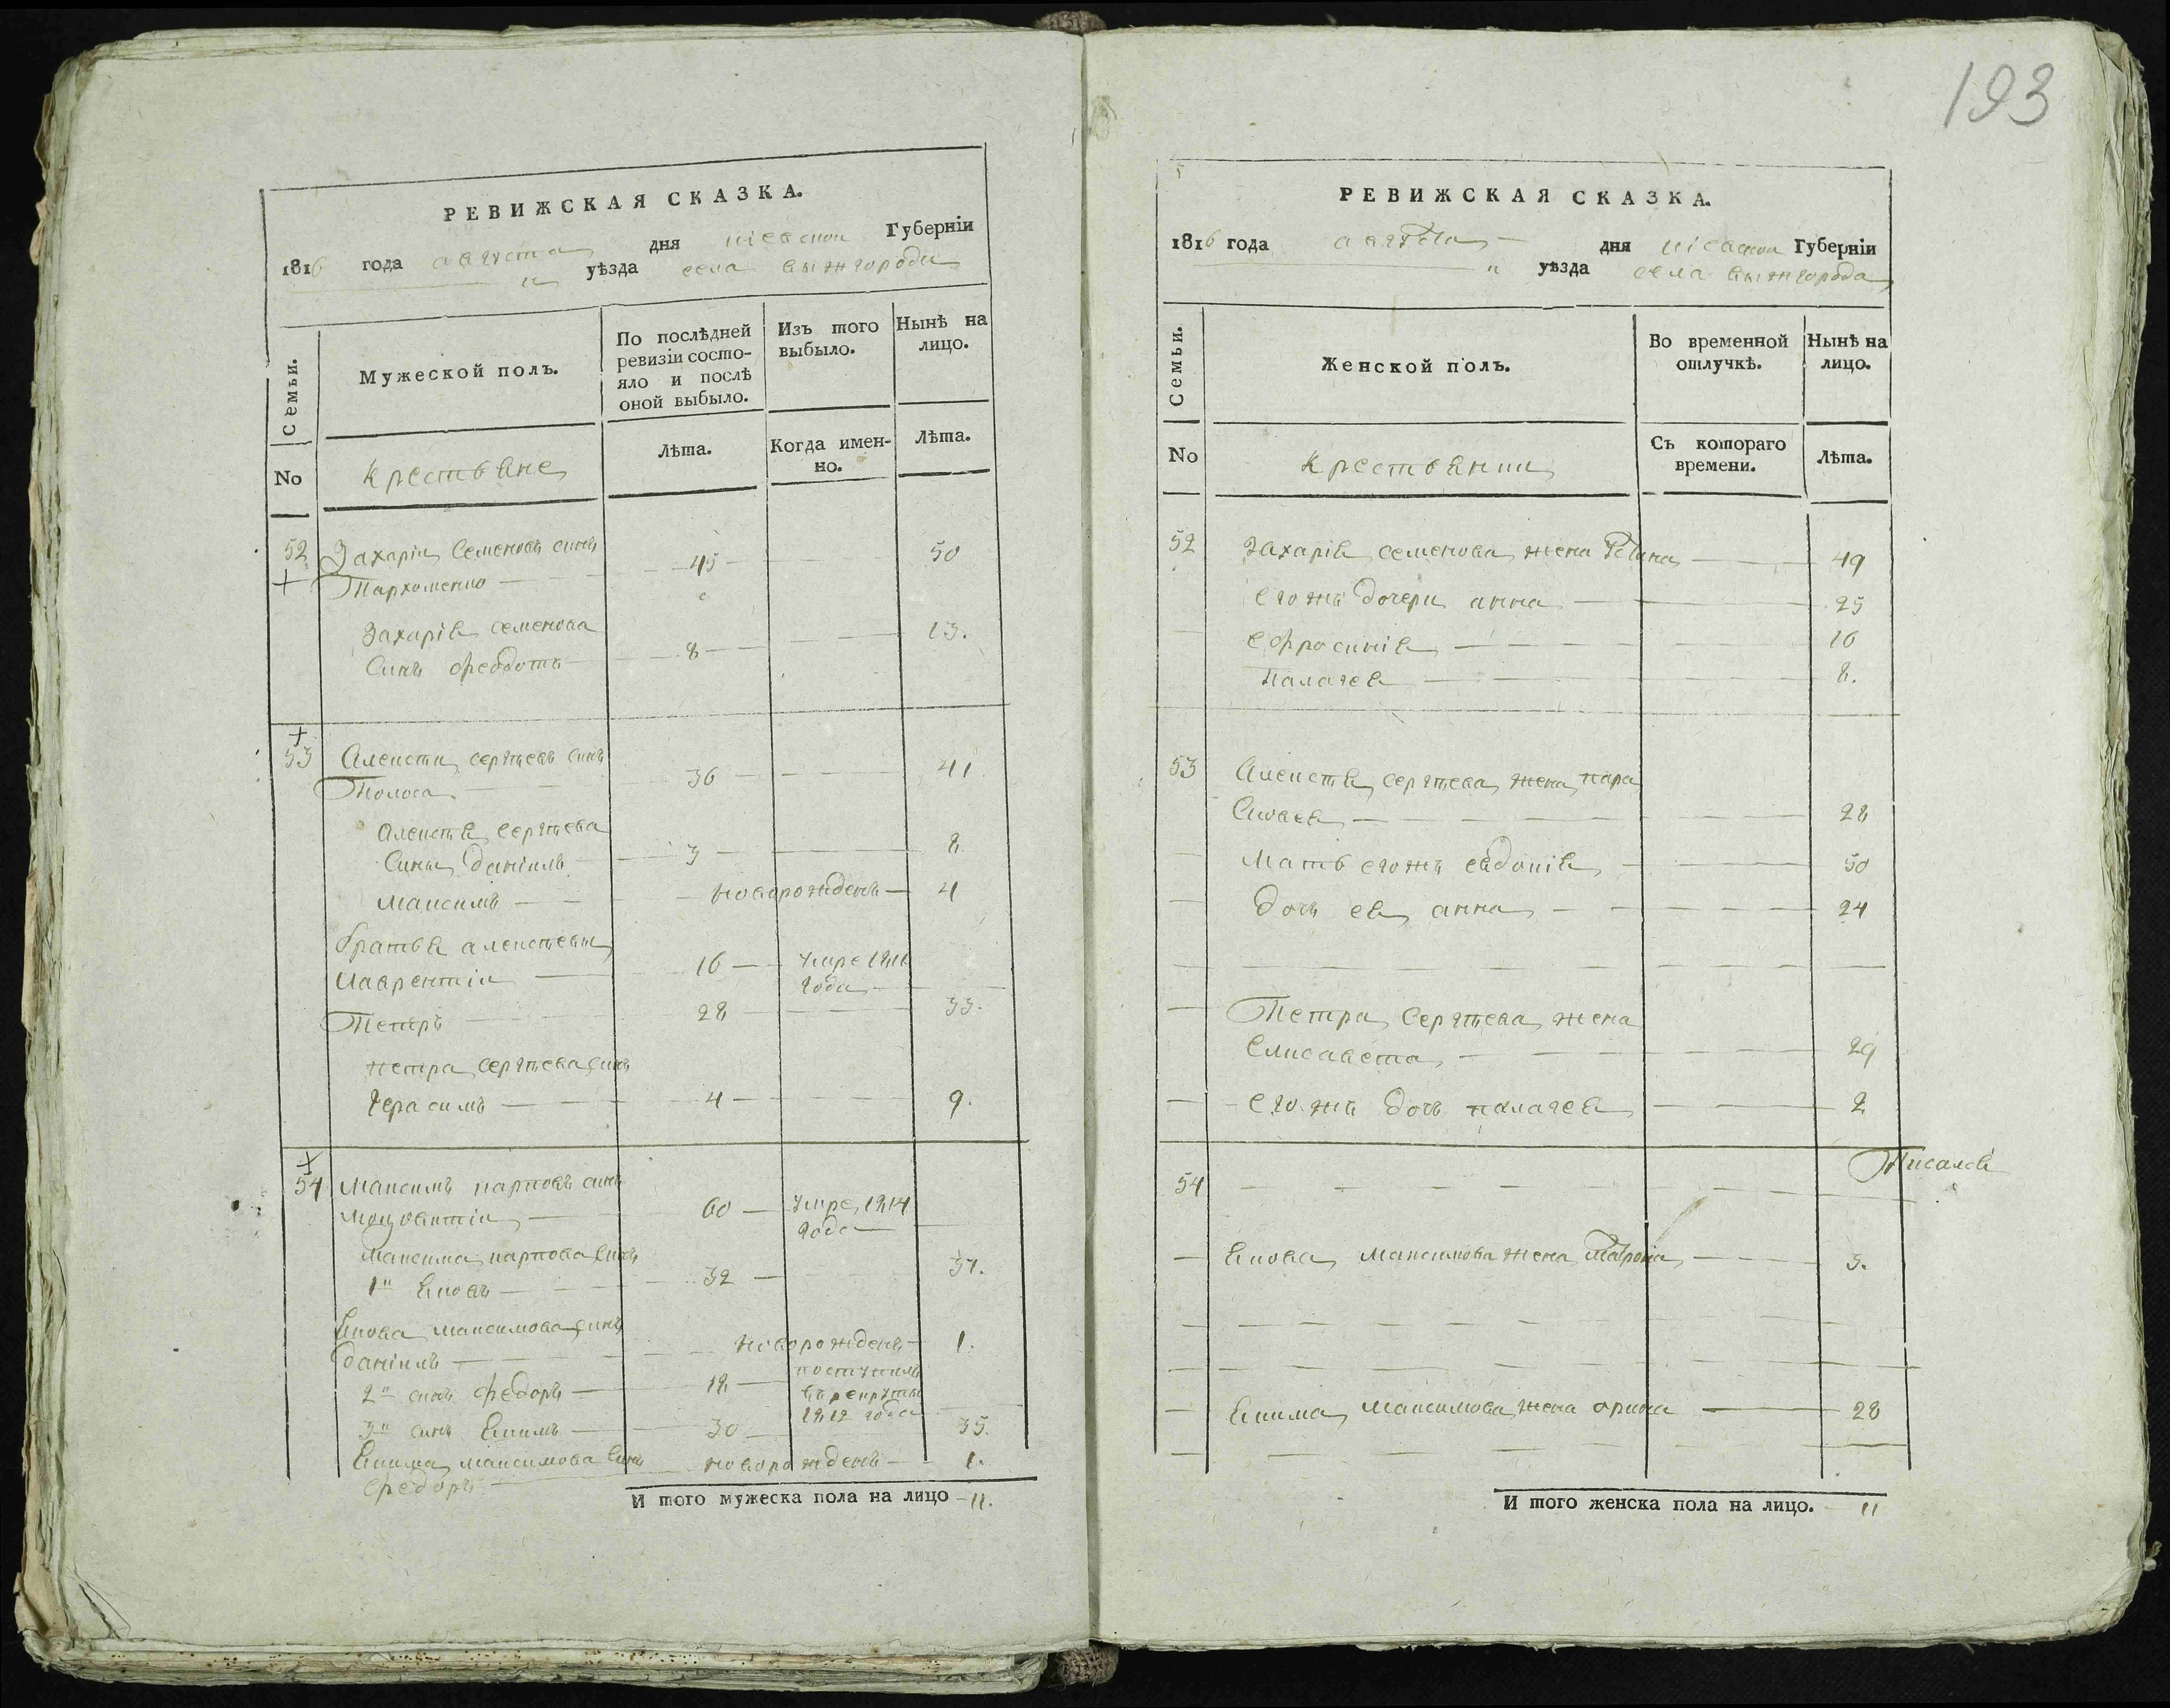 193
РЕВИЖСКАЯ СКАЗКА.
1816 года августа дня кіевской Губерніи
уѣзда села вышгорода
Семьи.
Мужеской полъ.
По послѣдней ревизіи состо-
яло и послѣ
оной выбыло.
Изъ того
выбыло.
Нынѣ на
лицо.
No
крестьяне
Лѣта.
Когда имен-
но.
Лѣта.
52 Захарій Семеновъ синъ
Пархоменко 45 50
Захарія семенова
Синъ Феодотъ 8 13.
53 Алексѣй сергѣевъ синъ
Голота 36 41
Алексѣя Сергѣева
Сини Даніилъ 3 8
Максимъ новорожденъ 4
братья алексѣевы
Лаврентій 16 умре 1811
года
Петръ 28 33.
петра сергѣева синъ
Герасимъ 4 9.
54 Максимъ карповъ синъ
60 умре 1814
года
Максима карпова синъ
1й Яковъ 32 37.
Якова максимова синъ
Даніилъ новорожденъ 1.
2й синъ Федоръ 18 поступилъ
в рекруты
1812 года
3й синъ Якимъ 30 35.
Якима максимова синъ новорожденъ 1.
Федоръ
И того мужеска пола на лицо 11.
РЕВИЖСКАЯ СКАЗКА.
1816 года августа дня кіевской Губерніи
уѣзда села вышгорода
Семьи.
Женской полъ.
Во временной
отлучкѣ.
Нынѣ на
лицо.
No
крестьянки
Съ котораго
времени.
Лѣта.
52 Захарія семенова жена 49
его жъ дочери анна 25
Ефросинія 16
Палагея 8.
53 Алексѣя сергѣева жена пара
скевея 28
Мать егожъ евдокія 50
дочь ея анна 24
Петра Сергѣева жена
Елисавета 29
его жъ дочь палагея 2
54
Якова максимова жена 3.
Якима максимова жена орина 28
И того женска пола на лицо. 11